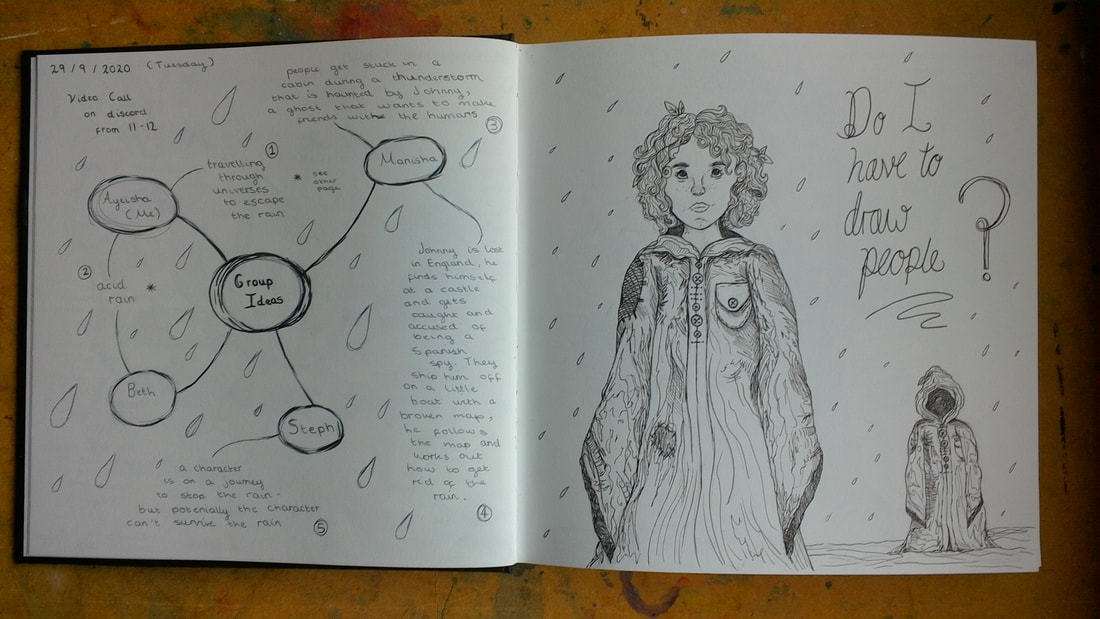 29/9/2020 (Tuesday)
Video Call
on discord
from 11-12
people get stuck in a
cabin during a thunderstorm
that is haunted by Johnny,
a ghost that wants to make
friends with the humans
③
Manisha
①
travelling
through
universes
to escape
the rain
* see
other
page
Ayeisha
(Me)
②
acid
rain *
Group
Ideas
Beth
Steph
Johnny is lost
in England, he
finds himself
at a castle
and gets
caught and
accused of
being a
Spanish
spy. They
ship him off
on a little
boat with a
broken map,
he follows
the map and
works out
how to get
rid of the
rain.
④
a character
is on a journey
to stop the rain -
but potenially the character
can't survive the rain
⑤
Do I
have to
draw
people
?